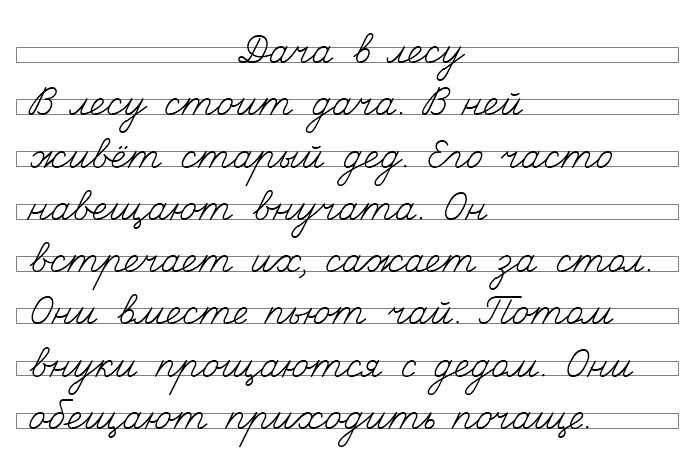 Дача в лесу
В лесу стоит дача. В ней
живёт старый дед. Его часто
навещают внучата. Он
встречает их, сажает за стол.
Они вместе пьют чай. Потом
внуки прощаются с дедом. Они
обещают приходить почаще.